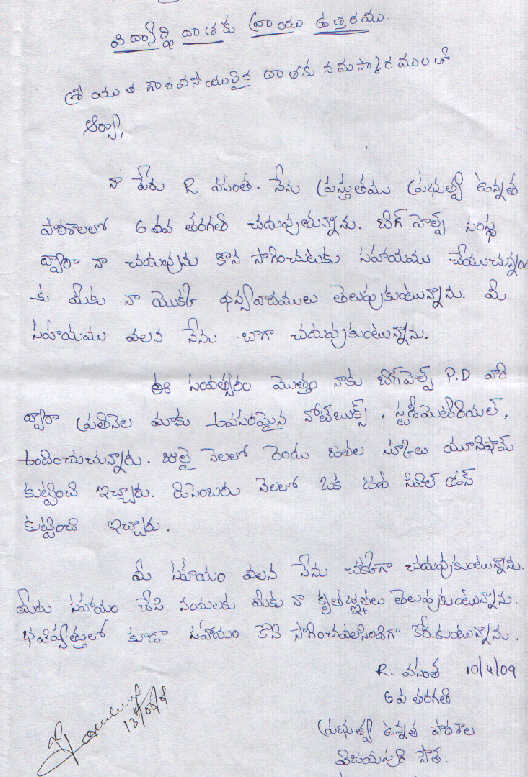 విద్యార్థి దాతకు వ్రాయు ఉత్తరము.
శ్రీయుత గౌరవనీయులైన దాతకు నమస్కారములతో
ఆర్యా,
నా పేరు R. వసంత. నేను ప్రస్తుతము ప్రభుత్వ ఉన్నత
పాఠశాలలో 6వ తరగతి చదువుచున్నాను. బిగ్ హెల్ప్ సంస్థ
ద్వారా నా చదువును కొన సాగించుటకు సహాయము చేయుచున్నం
-కు మీకు నా యొక్క ధన్యవాదములు తెలుపుకుంటున్నాను. మీ
సహాయము వలన నేను బాగా చదువుకుంటున్నాను.
ఈ సంవత్సరం మొత్తం నాకు బిగ్ హెల్ప్ P.D వారి
ద్వారా ప్రతినెల మాకు అవసరమైన నోట్‌బుక్స్, స్టడీమెటీరియల్,
అందించుచున్నారు. జులై నెలలో రెండు జతల స్కూలు యూనిఫామ్
కుట్టించి ఇచ్చారు. డిసెంబరు నెలలో ఒక జత సివిల్ డ్రస్
కుట్టించి ఇచ్చారు.
మీ సహాయం వలన నేను చక్కగా చదువుకుంటున్నాను.
మీరు సహాయం చేసి నందులకు మీకు నా కృతజ్ఞతలు తెలుపుకుంటున్నాను.
భవిష్యత్తులో కూడా సహాయం కొన సాగించవలసిందిగా కోరుకుంటున్నాను.
R. వసంత 10/4/09
6వ తరగతి
ప్రభుత్వ ఉన్నత పాఠశాల
విజయపురి సౌత్.